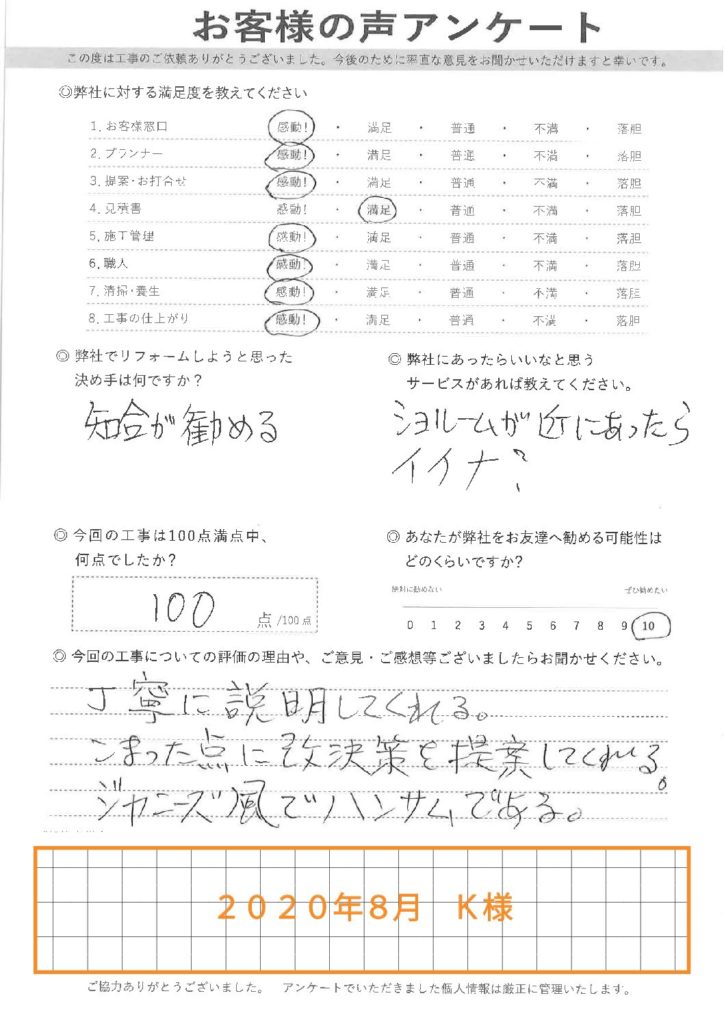 お客様の声アンケート
この度は工事のご依頼ありがとうございました。今後のために率直な意見をお聞かせいただけますと幸いです。
◎弊社に対する満足度を教えてください
1.お客様窓口 感動! ・ 満足 ・ 普通 ・ 不満 ・ 落胆
2.プランナー 感動! ・ 満足 ・ 普通 ・ 不満 ・ 落胆
3.提案・お打合せ 感動! ・ 満足 ・ 普通 ・ 不満 ・ 落胆
4.見積書 感動! ・ 満足 ・ 普通 ・ 不満 ・ 落胆
5.施工管理 感動! ・ 満足 ・ 普通 ・ 不満 ・ 落胆
6.職人 感動! ・ 満足 ・ 普通 ・ 不満 ・ 落胆
7.清掃・養生 感動! ・ 満足 ・ 普通 ・ 不満 ・ 落胆
8.工事の仕上がり 感動! ・ 満足 ・ 普通 ・ 不満 ・ 落胆
◎ 弊社でリフォームしようと思った
決め手は何ですか?
知合が勧める
◎ 弊社にあったらいいなと思う
サービスがあれば教えてください。
ショルームが近にあったら
イイナ?
◎ 今回の工事は100点満点中、
何点でしたか?
100 点 /100点
◎ あなたが弊社をお友達へ勧める可能性は
どのくらいですか?
絶対に勧めない ぜひ勧めたい
0 1 2 3 4 5 6 7 8 9 10
◎ 今回の工事についての評価の理由や、ご意見・ご感想等ございましたらお聞かせください。
丁寧に説明してくれる。
こまった点に改決策を提案してくれる。
ジャニーズ風でハンサムである。
2020年8月 K様
ご協力ありがとうございました。 アンケートでいただきました個人情報は厳正に管理いたします。